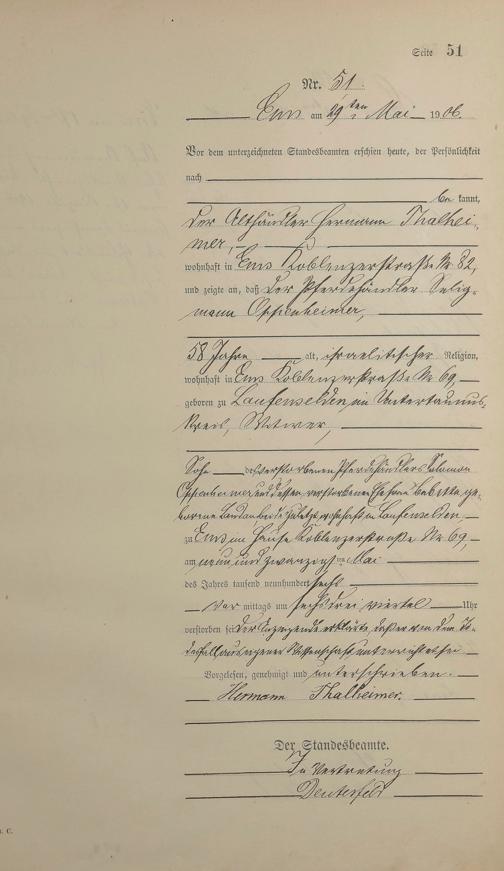 Seite 51
Nr. 51.
Ems am 29ten Mai 1906.
Vor dem unterzeichneten Standesbeamten erschien heute, der Persönlichkeit
nach
be kannt,
der Althändler Hermann Thalhei-
mer,
wohnhaft in Ems Koblenzerstraße Nr 82,
und zeigte an, daß der Pferdehändler Selig-
mann Oppenheimer,
58 Jahre alt, israelitischer Religion,
wohnhaft in Ems Koblenzerstraße Nr 69,
geboren zu Laufenselden, im Untertaunus-
kreis, Witwer,
Sohn des verstorbenen Pferdehändlers Salomon
Oppenheimer und dessen verstorbenen Ehefrau Babette ge-
borene zuletzt wohnhaft in Laufenselden
zu Ems im Hause Koblenzerstraße Nr 69,
am neun und zwanzigsten Mai
des Jahres tausend neunhundert sechs
vor mittags um sechs drei viertel Uhr
verstorben sei. Der Anzeigende erklärte, daß er von dem To-
desfall aus eigener Wissenschaft unterrichtet sei
Vorgelesen, genehmigt und unterschrieben.
Hermann Thalheimer.
Der Standesbeamte.
In Vertretung